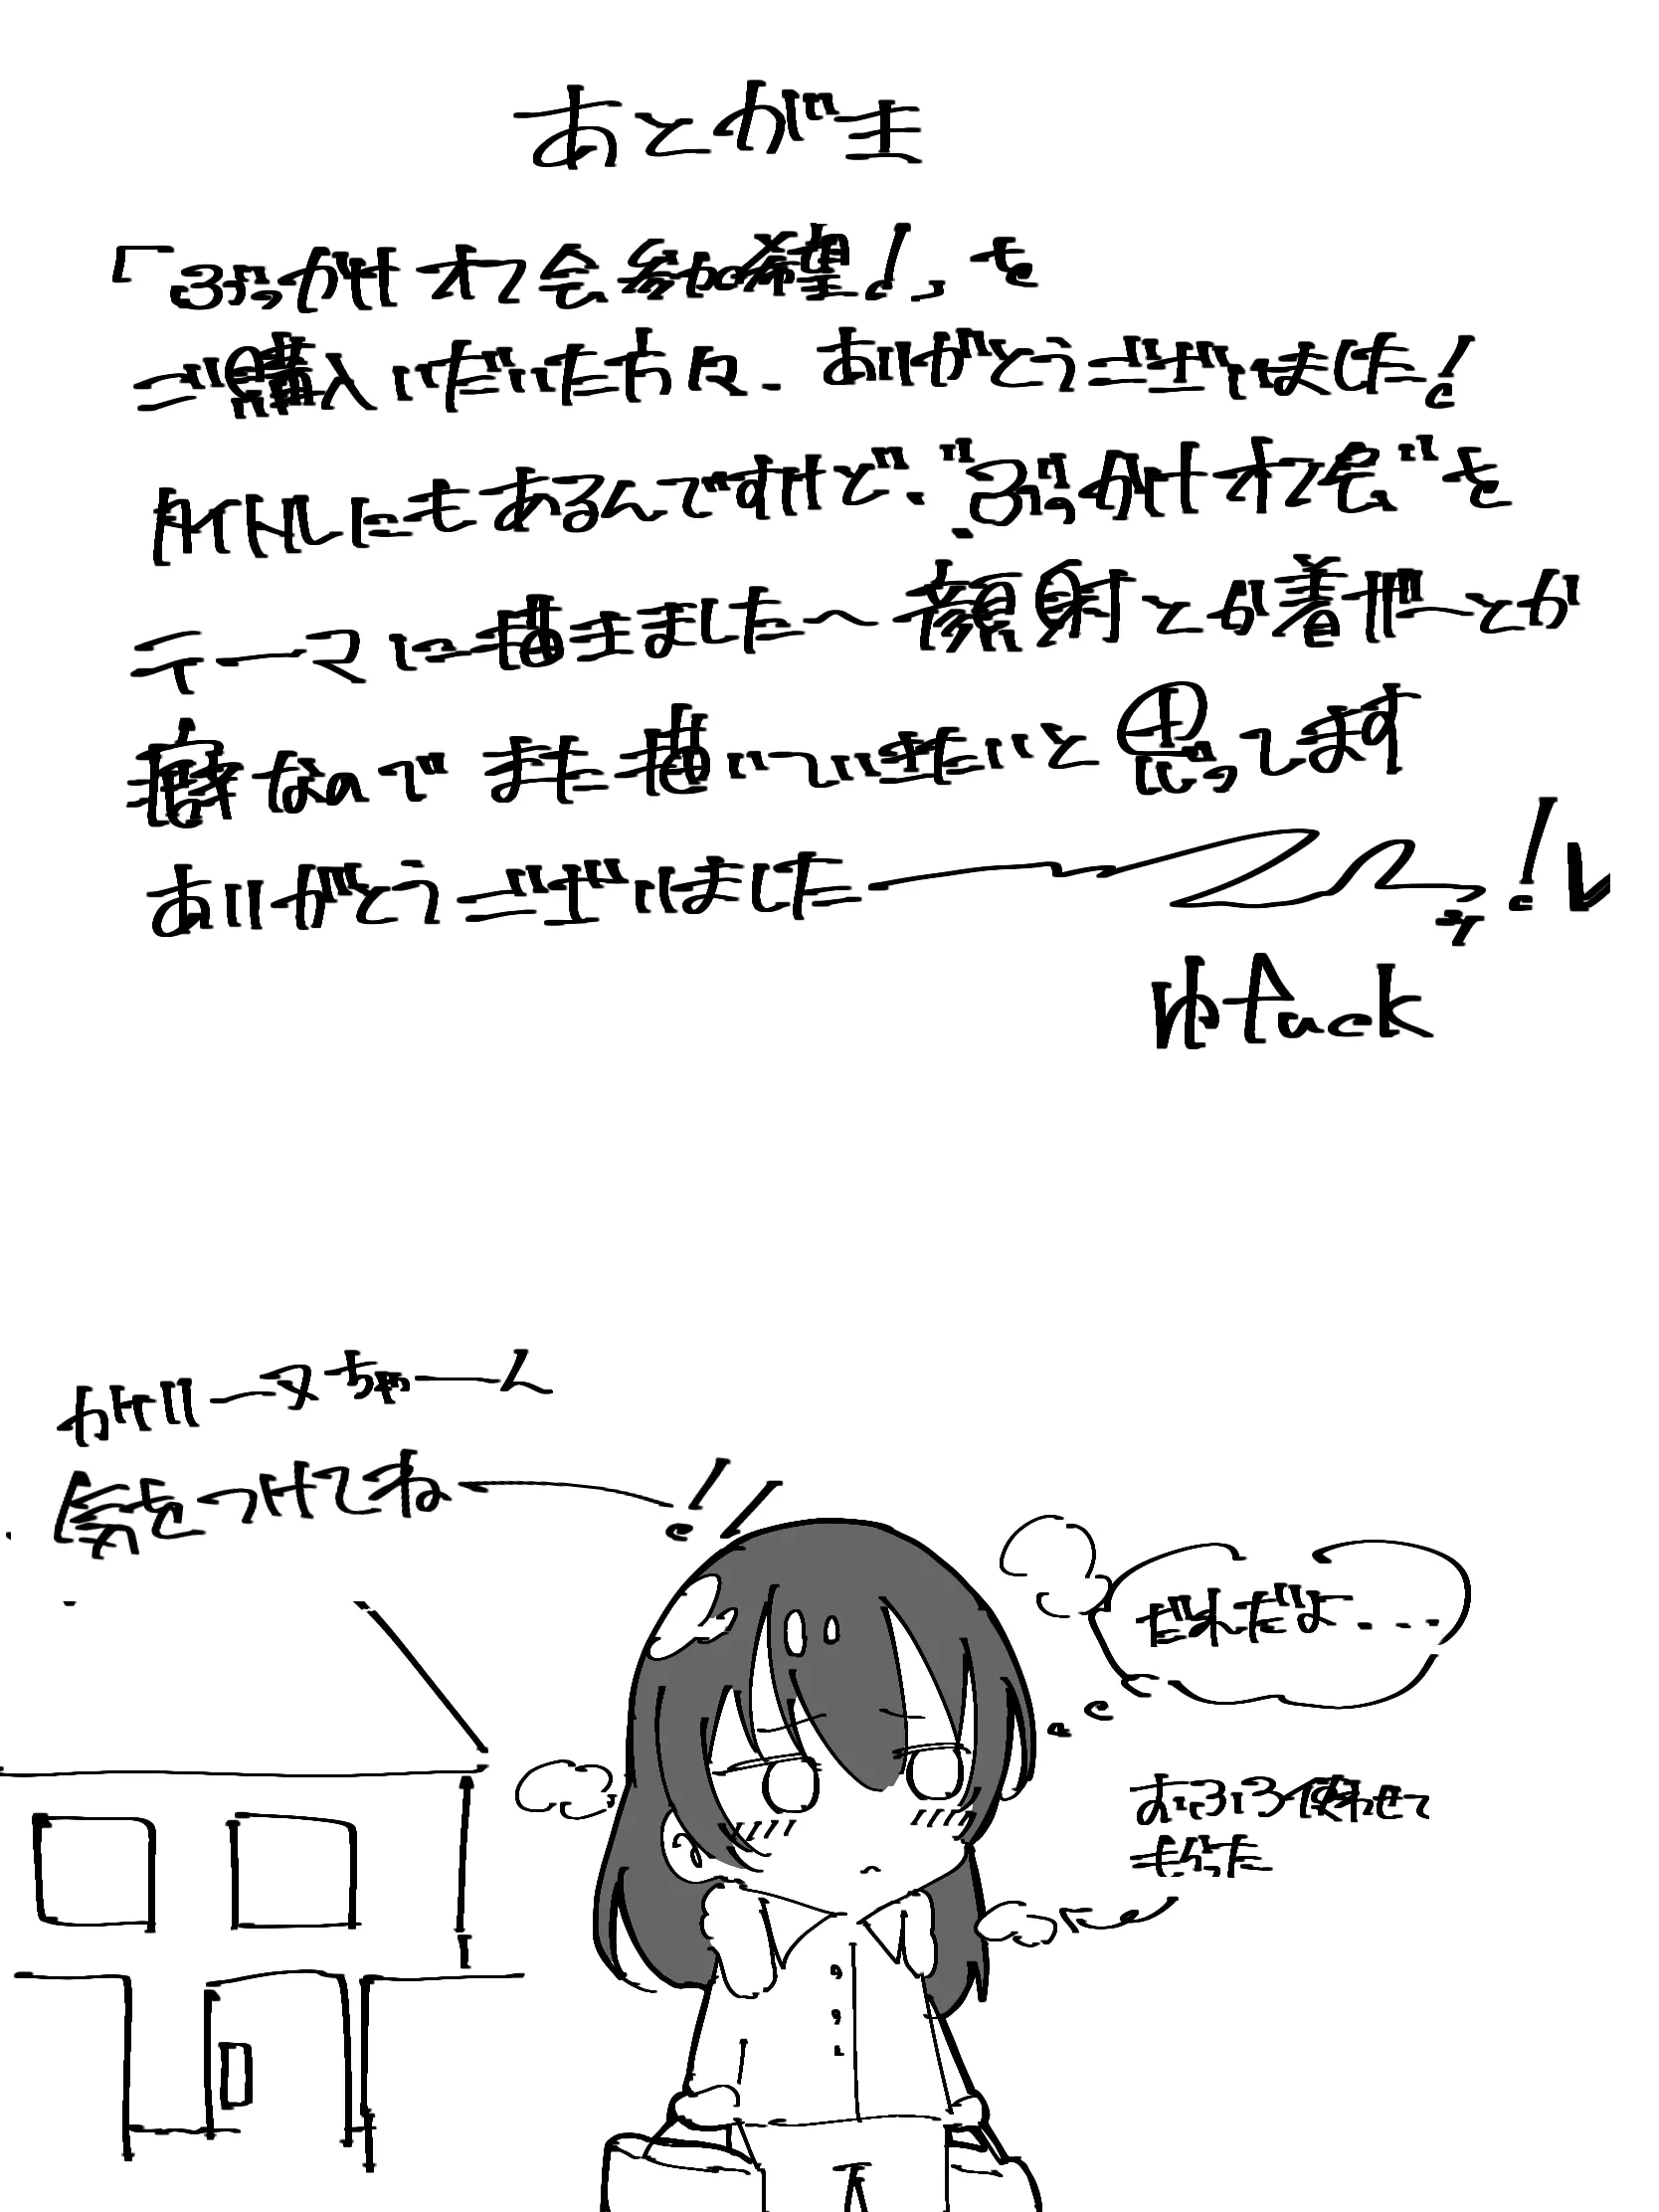 あとがき
「ぶっかけオフ会参加希望!」を
ご購入いただいた方々、ありがとうございました!
タイトルにもあるんですけど、"ぶっかけオフ会"を
テーマに描きました〜顔射とか着ザーとか
癖なのでまた描いていきたいと思ってます
ありがとうございましたーーー!!
ゆ
ガリーヌちゃーん
気をつけてねー!!
だれだよ...
おふろ使わせて
もらった